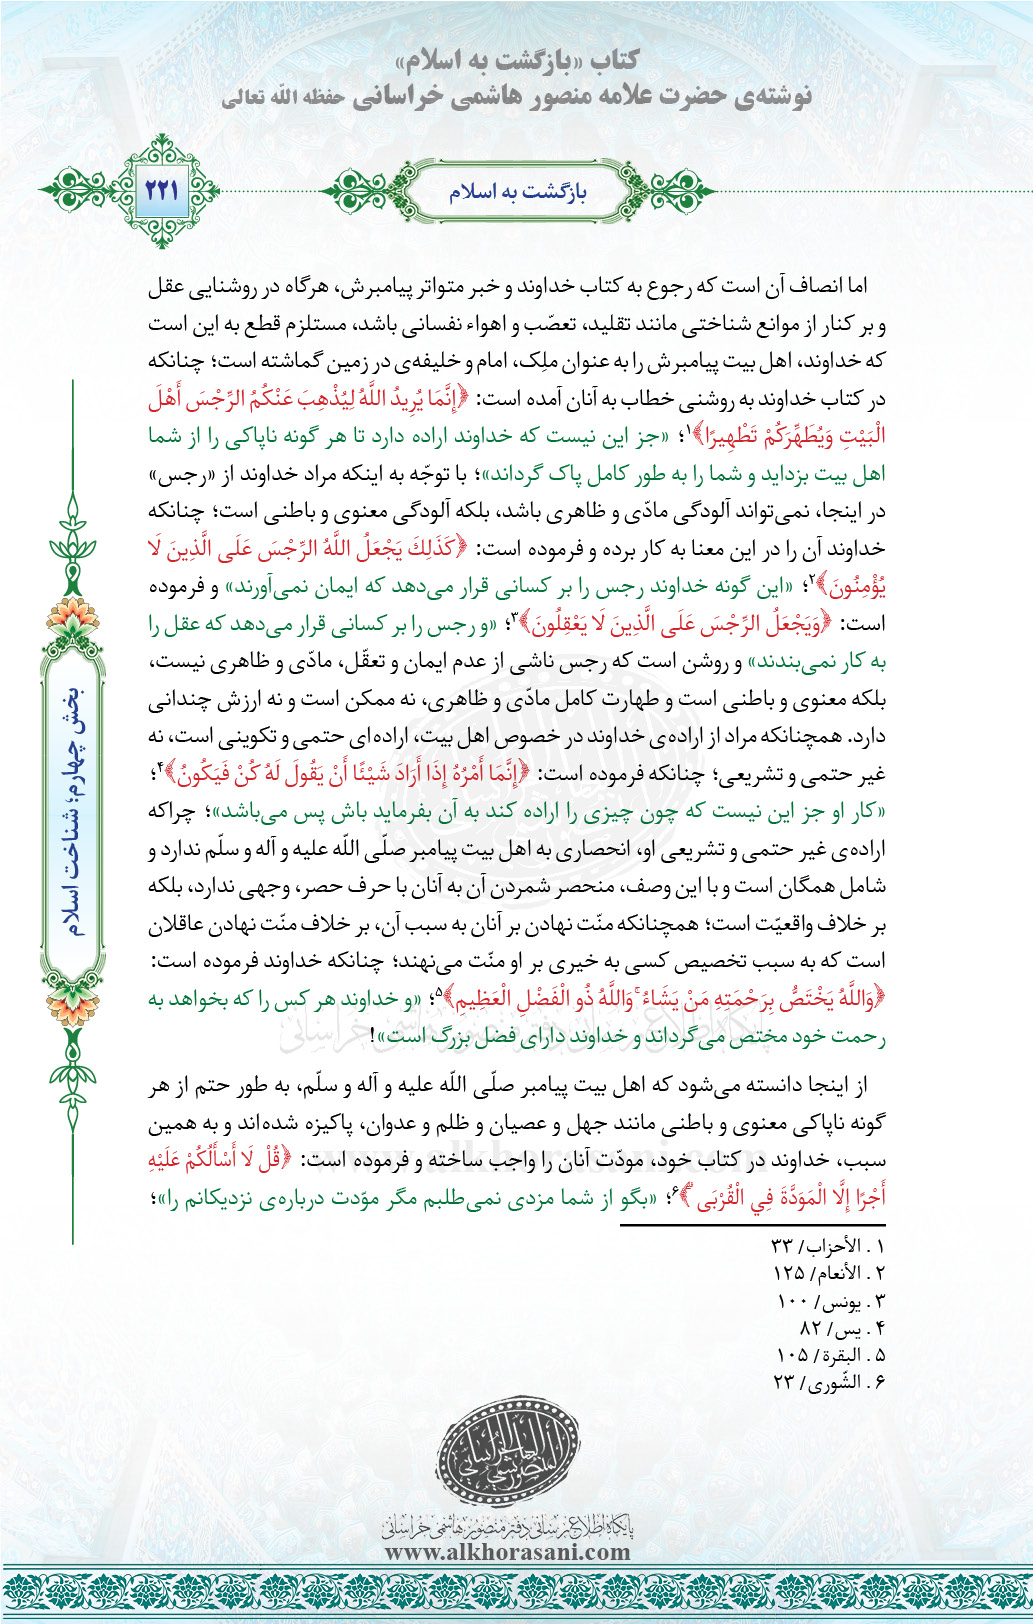 کتاب «بازگشت به اسلام»
نوشته‌ی حضرت علامه منصور هاشمی خراسانی حفظه الله تعالی
بازگشت به اسلام
۲۲۱
اما انصاف آن است که رجوع به کتاب خداوند و خبر متواتر پیامبرش، هرگاه در روشنایی عقل
و بر کنار از موانع شناختی مانند تقلید، تعصّب و اهواء نفسانی باشد، مستلزم قطع به این است
که خداوند، اهل بیت پیامبرش را به عنوان ملِک، امام و خلیفه‌ی در زمین گماشته است؛ چنانکه
در کتاب خداوند به روشنی خطاب به آنان آمده است: ﴿إِنَّمَا يُرِيدُ اللَّهُ لِيُذْهِبَ عَنْكُمُ الرِّجْسَ أَهْلَ
الْبَيْتِ وَيُطَهِّرَكُمْ تَطْهِيرًا﴾۱؛ «جز این نیست که خداوند اراده دارد تا هر گونه ناپاکی را از شما
اهل بیت بزداید و شما را به طور کامل پاک گرداند»؛ با توجّه به اینکه مراد خداوند از «رجس»
در اینجا، نمی‌تواند آلودگی مادّی و ظاهری باشد، بلکه آلودگی معنوی و باطنی است؛ چنانکه
خداوند آن را در این معنا به کار برده و فرموده است: ﴿كَذَلِكَ يَجْعَلُ اللَّهُ الرِّجْسَ عَلَى الَّذِينَ لَا
يُؤْمِنُونَ﴾۲؛ «این گونه خداوند رجس را بر کسانی قرار می‌دهد که ایمان نمی‌آورند» و فرموده
است: ﴿وَيَجْعَلُ الرِّجْسَ عَلَى الَّذِينَ لَا يَعْقِلُونَ﴾۳؛ «و رجس را بر کسانی قرار می‌دهد که عقل را
به کار نمی‌بندند» و روشن است که رجس ناشی از عدم ایمان و تعقّل، مادّی و ظاهری نیست،
بلکه معنوی و باطنی است و طهارت کامل مادّی و ظاهری، نه ممکن است و نه ارزش چندانی
دارد. همچنانکه مراد از اراده‌ی خداوند در خصوص اهل بیت، اراده‌ای حتمی و تکوینی است، نه
غیر حتمی و تشریعی؛ چنانکه فرموده است: ﴿إِنَّمَا أَمْرُهُ إِذَا أَرَادَ شَيْئًا أَنْ يَقُولَ لَهُ كُنْ فَيَكُونُ﴾۴؛
«کار او جز این نیست که چون چیزی را اراده کند به آن بفرماید باش پس می‌باشد»؛ چراکه
اراده‌ی غیر حتمی و تشریعی او، انحصاری به اهل بیت پیامبر صلّی اللّه علیه و آله و سلّم ندارد و
شامل همگان است و با این وصف، منحصر شمردن آن به آنان با حرف حصر، وجهی ندارد، بلکه
بر خلاف واقعیّت است؛ همچنانکه منّت نهادن بر آنان به سبب آن، بر خلاف منّت نهادن عاقلان
است که به سبب تخصیص کسی به خیری بر او منّت می‌نهند؛ چنانکه خداوند فرموده است:
﴿وَاللَّهُ يَخْتَصُّ بِرَحْمَتِهِ مَنْ يَشَاءُ ۚ وَاللَّهُ ذُو الْفَضْلِ الْعَظِيمِ﴾۵؛ «و خداوند هر کس را که بخواهد به
رحمت خود مختص می‌گرداند و خداوند دارای فضل بزرگ است»!
از اینجا دانسته می‌شود که اهل بیت پیامبر صلّی اللّه علیه و آله و سلّم، به طور حتم از هر
گونه ناپاکی معنوی و باطنی مانند جهل و عصیان و ظلم و عدوان، پاکیزه شده‌اند و به همین
سبب، خداوند در کتاب خود، مودّت آنان را واجب ساخته و فرموده است: ﴿قُلْ لَا أَسْأَلُكُمْ عَلَيْهِ
أَجْرًا إِلَّا الْمَوَدَّةَ فِي الْقُرْبَى ۗ﴾۶؛ «بگو از شما مزدی نمی‌طلبم مگر مؤدت درباره‌ی نزدیکانم را»؛
۱ . الأحزاب/ ۳۳
۲ . الأنعام/ ۱۲۵
۳ . یونس/ ۱۰۰
۴ . یس/ ۸۲
۵ . البقرة/ ۱۰۵
۶ . الشّوری/ ۲۳
بخش چهارم؛ شناخت اسلام
پایگاه اطلاع رسانی دفتر منصور هاشمی خراسانی
www.alkhorasani.com